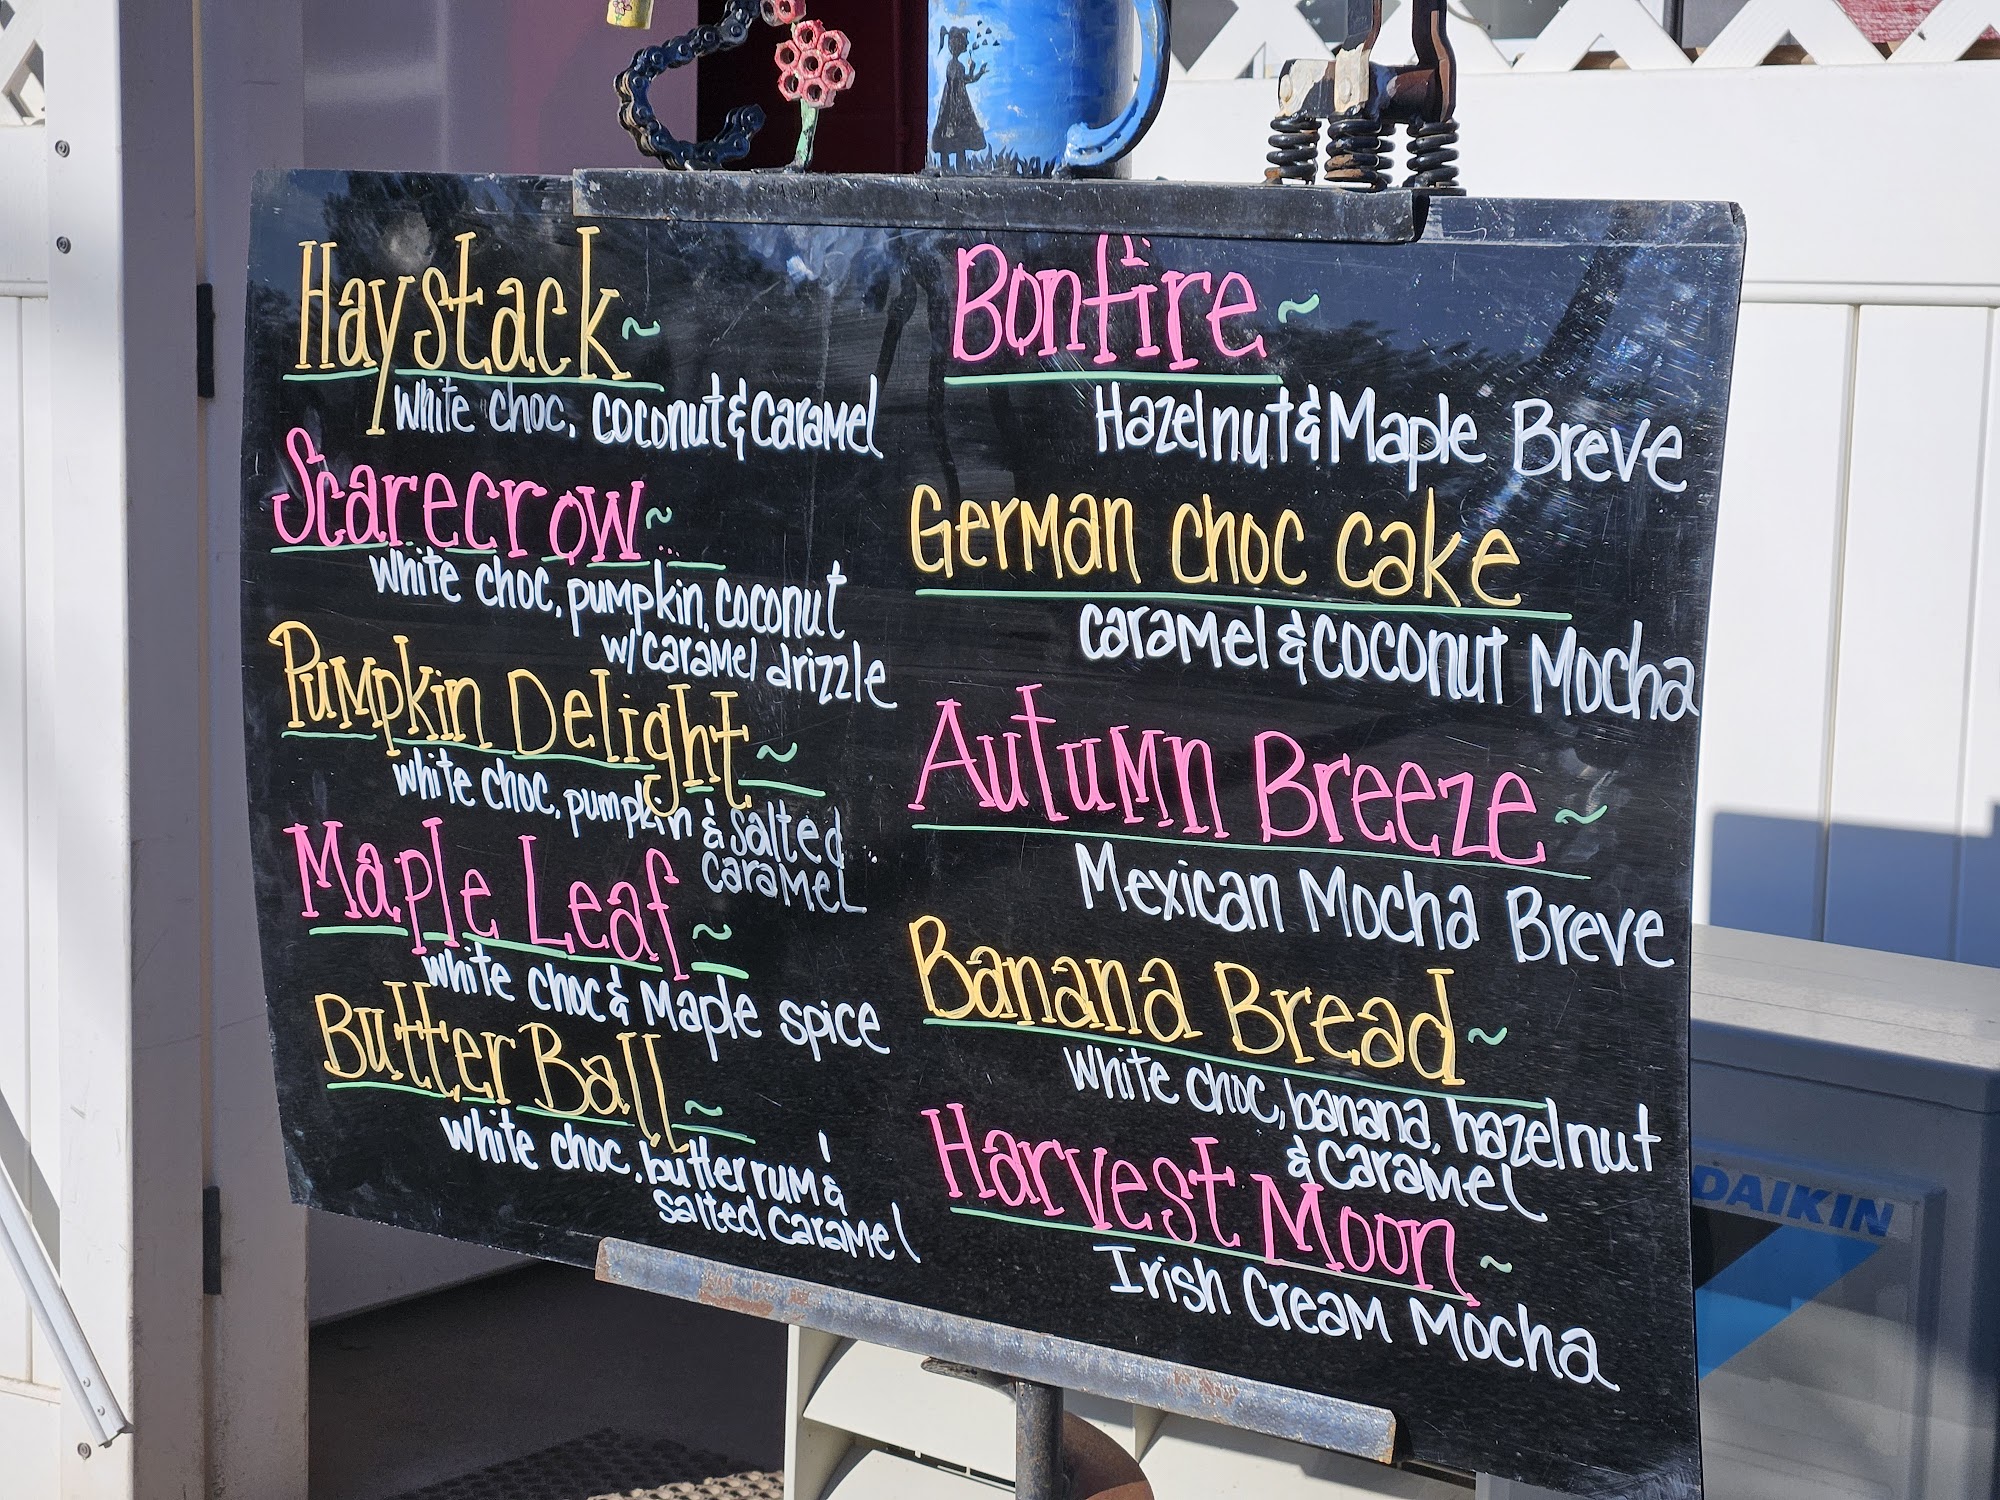 Haystack ~
white choc, coconut & caramel
Scarecrow ~
white choc, pumpkin, coconut
w/ caramel drizzle
Pumpkin Delight ~
white choc, pumpkin & salted
caramel
Maple Leaf ~
white choc & Maple spice
Butter Ball ~
white choc, butter rum &
salted caramel
Bonfire ~
Hazelnut & Maple Breve
German choc cake
caramel & coconut Mocha
Autumn Breeze ~
Mexican Mocha Breve
Banana Bread ~
white choc, banana, hazelnut
& caramel
Harvest Moon ~
Irish Cream Mocha
DAIKIN